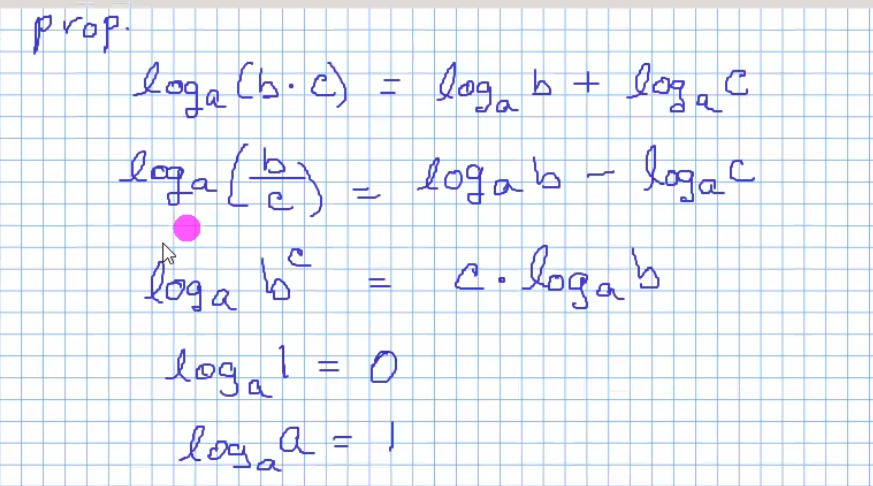 prop.
logₐ(b · c) = logₐ b + logₐ c
logₐ(b/c) = logₐ b − logₐ c
logₐ bᶜ = c · logₐ b
logₐ 1 = 0
logₐ a = 1